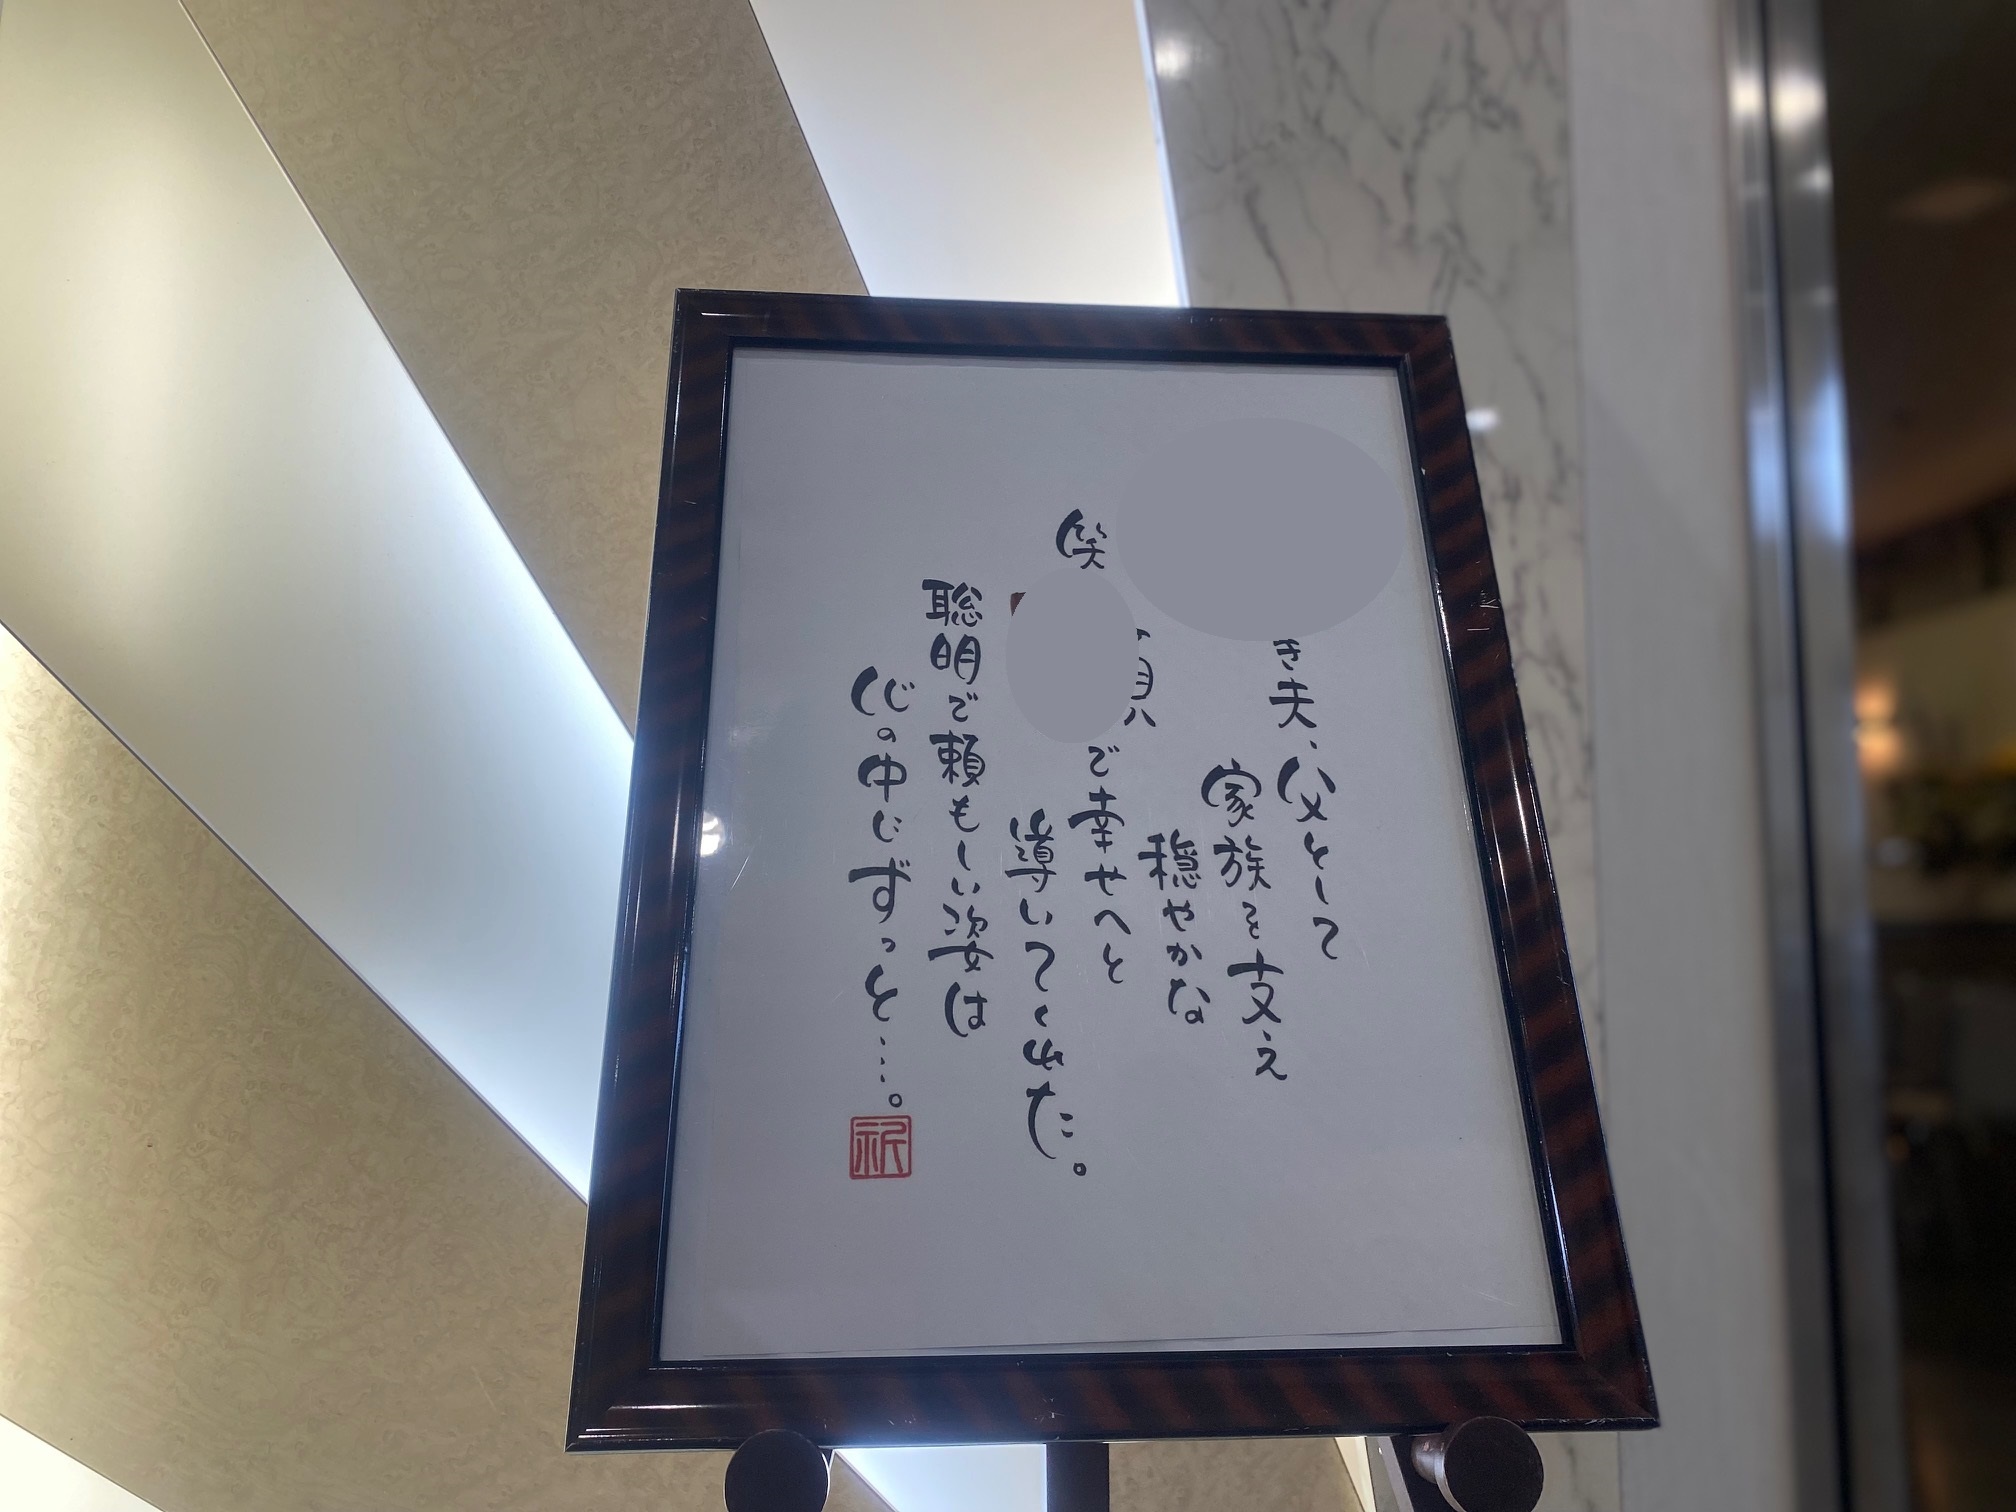 き夫、父として
家族を支え
穏やかな
笑 で幸せへと
導いてくれた。
聡明で頼もしい姿は
心の中にずっと……。